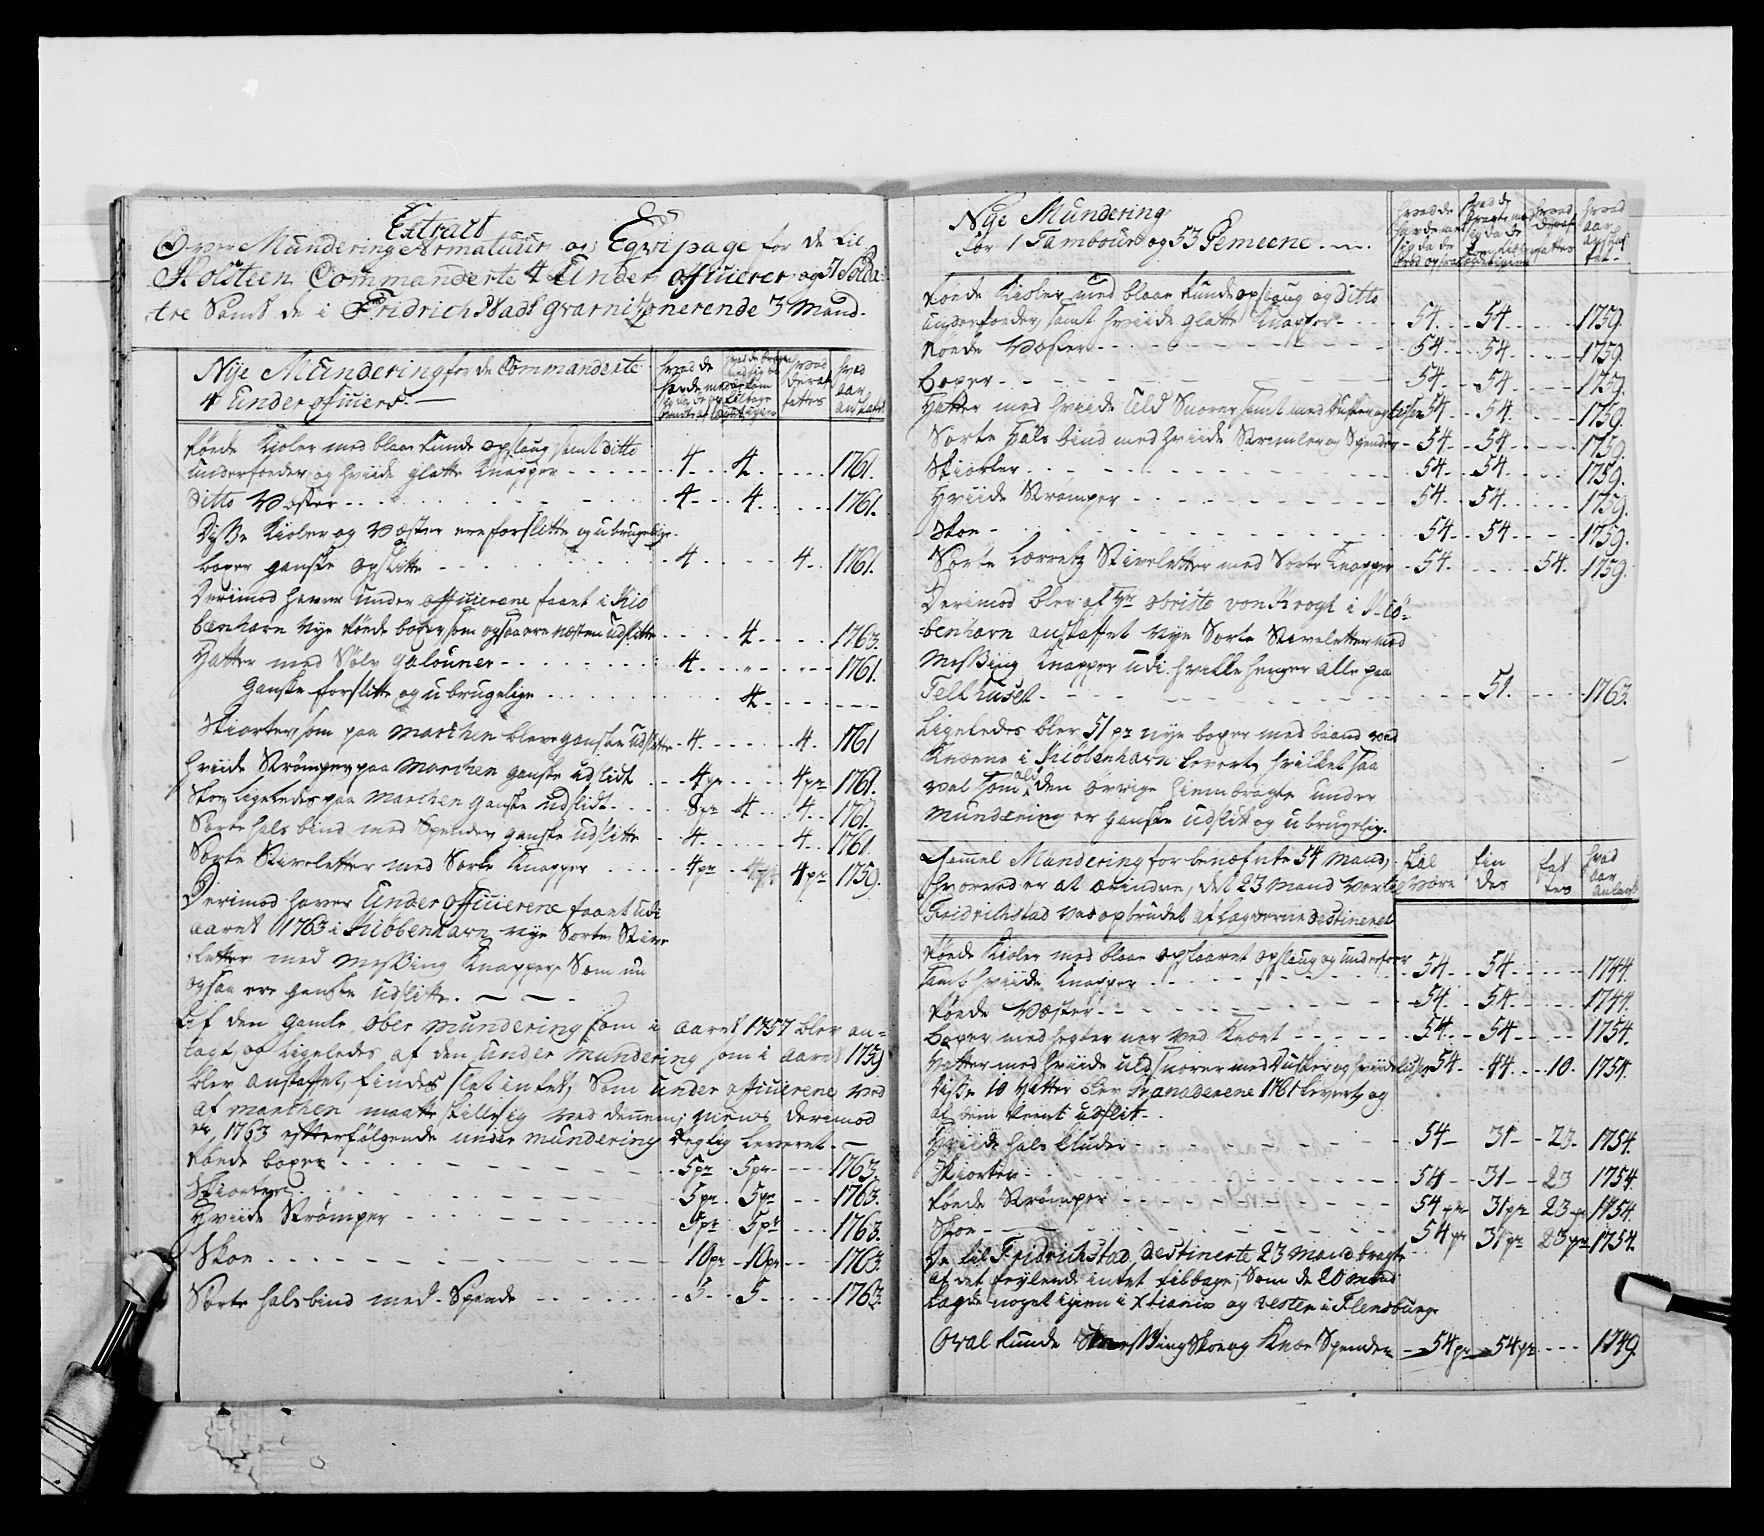 Extract
Over Mundering Armatuur og Eqvipage for de til
Holsteen Commanderte 4 Under officerer og 51 Solda-
tre Samt de i Fridrichstads gvarnitzonerende 3 Mand.
Nye Mundering for de Commanderte
4 Under officers.
hvad de
havde med
hvad
deraf
fattes
hvad
aar
anskaft
Røde Kioler med blaae runde opslaug samt ditto
underfoeder og hviide glatte Knapper 4 4 1761.
Ditto Vester 4 4 1761.
Disse Kioler og Vester ere forslitte og ubrugelige.
boxer ganske opslitte 4 4 1761.
Derimod haver Under officierene faaet i Kiø
benhavn Nye røde boxer som ogsaa ere næsten udslitte 4 1763.
Hatter med Sølv galouner 4 1761.
Ganske forslitte og ubrugelige 4
Skiorter, som paa Marchen bleve ganske udslitte 4 4 1761
Hviide Strømper paa Marchen ganske udslidt 4 pr 4 pr 1761.
Skoe ligeledes paa Marchen ganske udslidt 8 pr 4 4 1761.
Sorte hals bind med Spender ganske udslitte 4 4 1761.
Sorte Stiveletter med Sorte Knapper 4 pr 4 pr 4 pr 1759.
Derimod haver Under officierene faaet udi
aaret 1763 i Kiøbenhavn nye Sorte Stive
letter med Messing Knapper, Som nu
ogsaa ere ganske udslitte.
Af den gamle ober mundering som i aaret 1757 blev an-
lagt og ligeledes af den under mundering som i aaret 1759
blev anstaffet, findes slet intet, Som under officierene ved
af marchen maatte skille sig ved dennem; derimod
er 1763 efterfølgende under mundering leveret.
Røde boxer 5 pr 5 pr 1763.
Skiorter 5 pr 5 pr 1763.
Hviide Strømper 5 pr 5 pr 1763.
Skoe 10 pr 10 pr 1763
Sorte halsbind med Spende 5 5 1763.
Nye Mundering
for 1 Tambour og 53 Gemeene
hvad de
havde med
sig da de
hvad
deraf
fattes
hvad
aar
anskaf
fet
Røde Kioler med blaae runde opslaug og ditto
underfoeder, samt hviide glatte Knapper 54 54 1759.
Røde Vester 54 54 1759.
Boxer 54 54 1759.
Hatter med hviide Uld Snorer samt med 54 54 1759.
Sorte Hals bind med hviide Strimler og Spender 54 54 1759.
Skiorter 54 54 1759.
Hviide Strømper 54 54 1759.
Skoe 54 54 1759.
Sorte Lærretz Stiveletter med Sorte Knapper 54 54 1759.
Derimod blev af Hr Obriste von Krogh i Kiø-
benhavn anstaffet nye Sorte Stiveletter med
Messing Knapper udi hvilke henger alle paa
Telthuset 51 1763.
Ligeledes blev 51 pr nye boxer med baand ved
Knæene i Kiøbenhavn levert, hvilket saa
vel som all den øvrige hiembragte under
Mundering er ganske udslitt og ubrugelig.
Gammel Mundering for benæfnte 54 Mand,
hvorved er at erindre, det 23 Mand
Fridrichstad ved opbrudet af Lagderne destineret
skal
være
fin
des
fat
tes
hvad
aar
anlagt
Røde Kioler med blaae opslaug og underfoer
samt hviide Knapper 54 54 1744.
Røde Vester 54 54 1744.
Boxer med hegter ner ved Knæet 54 54 1754.
Hatter med hviide uldsnorer med 54 44 10 1754.
disse 10 Hatter blev Granaderene 1761 levert og
af dem bleven udslit.
Hviide hals klude 54 31 23 1754.
Skiorter 54 31 23 1754.
Røde Strømper 54 pr 31 pr 23 pr 1754.
Skoe 54 pr 31 pr 23 pr 1754.
De til Fridrichstad destinerte 23 Mand bragte
af det feylende intet tilbage, Som de 20 mand
lagde noget igien i Xtiania og resten i Flensburg.
Oval runde Messing Skoe og Knæe Spender 54 pr 54 pr 1749